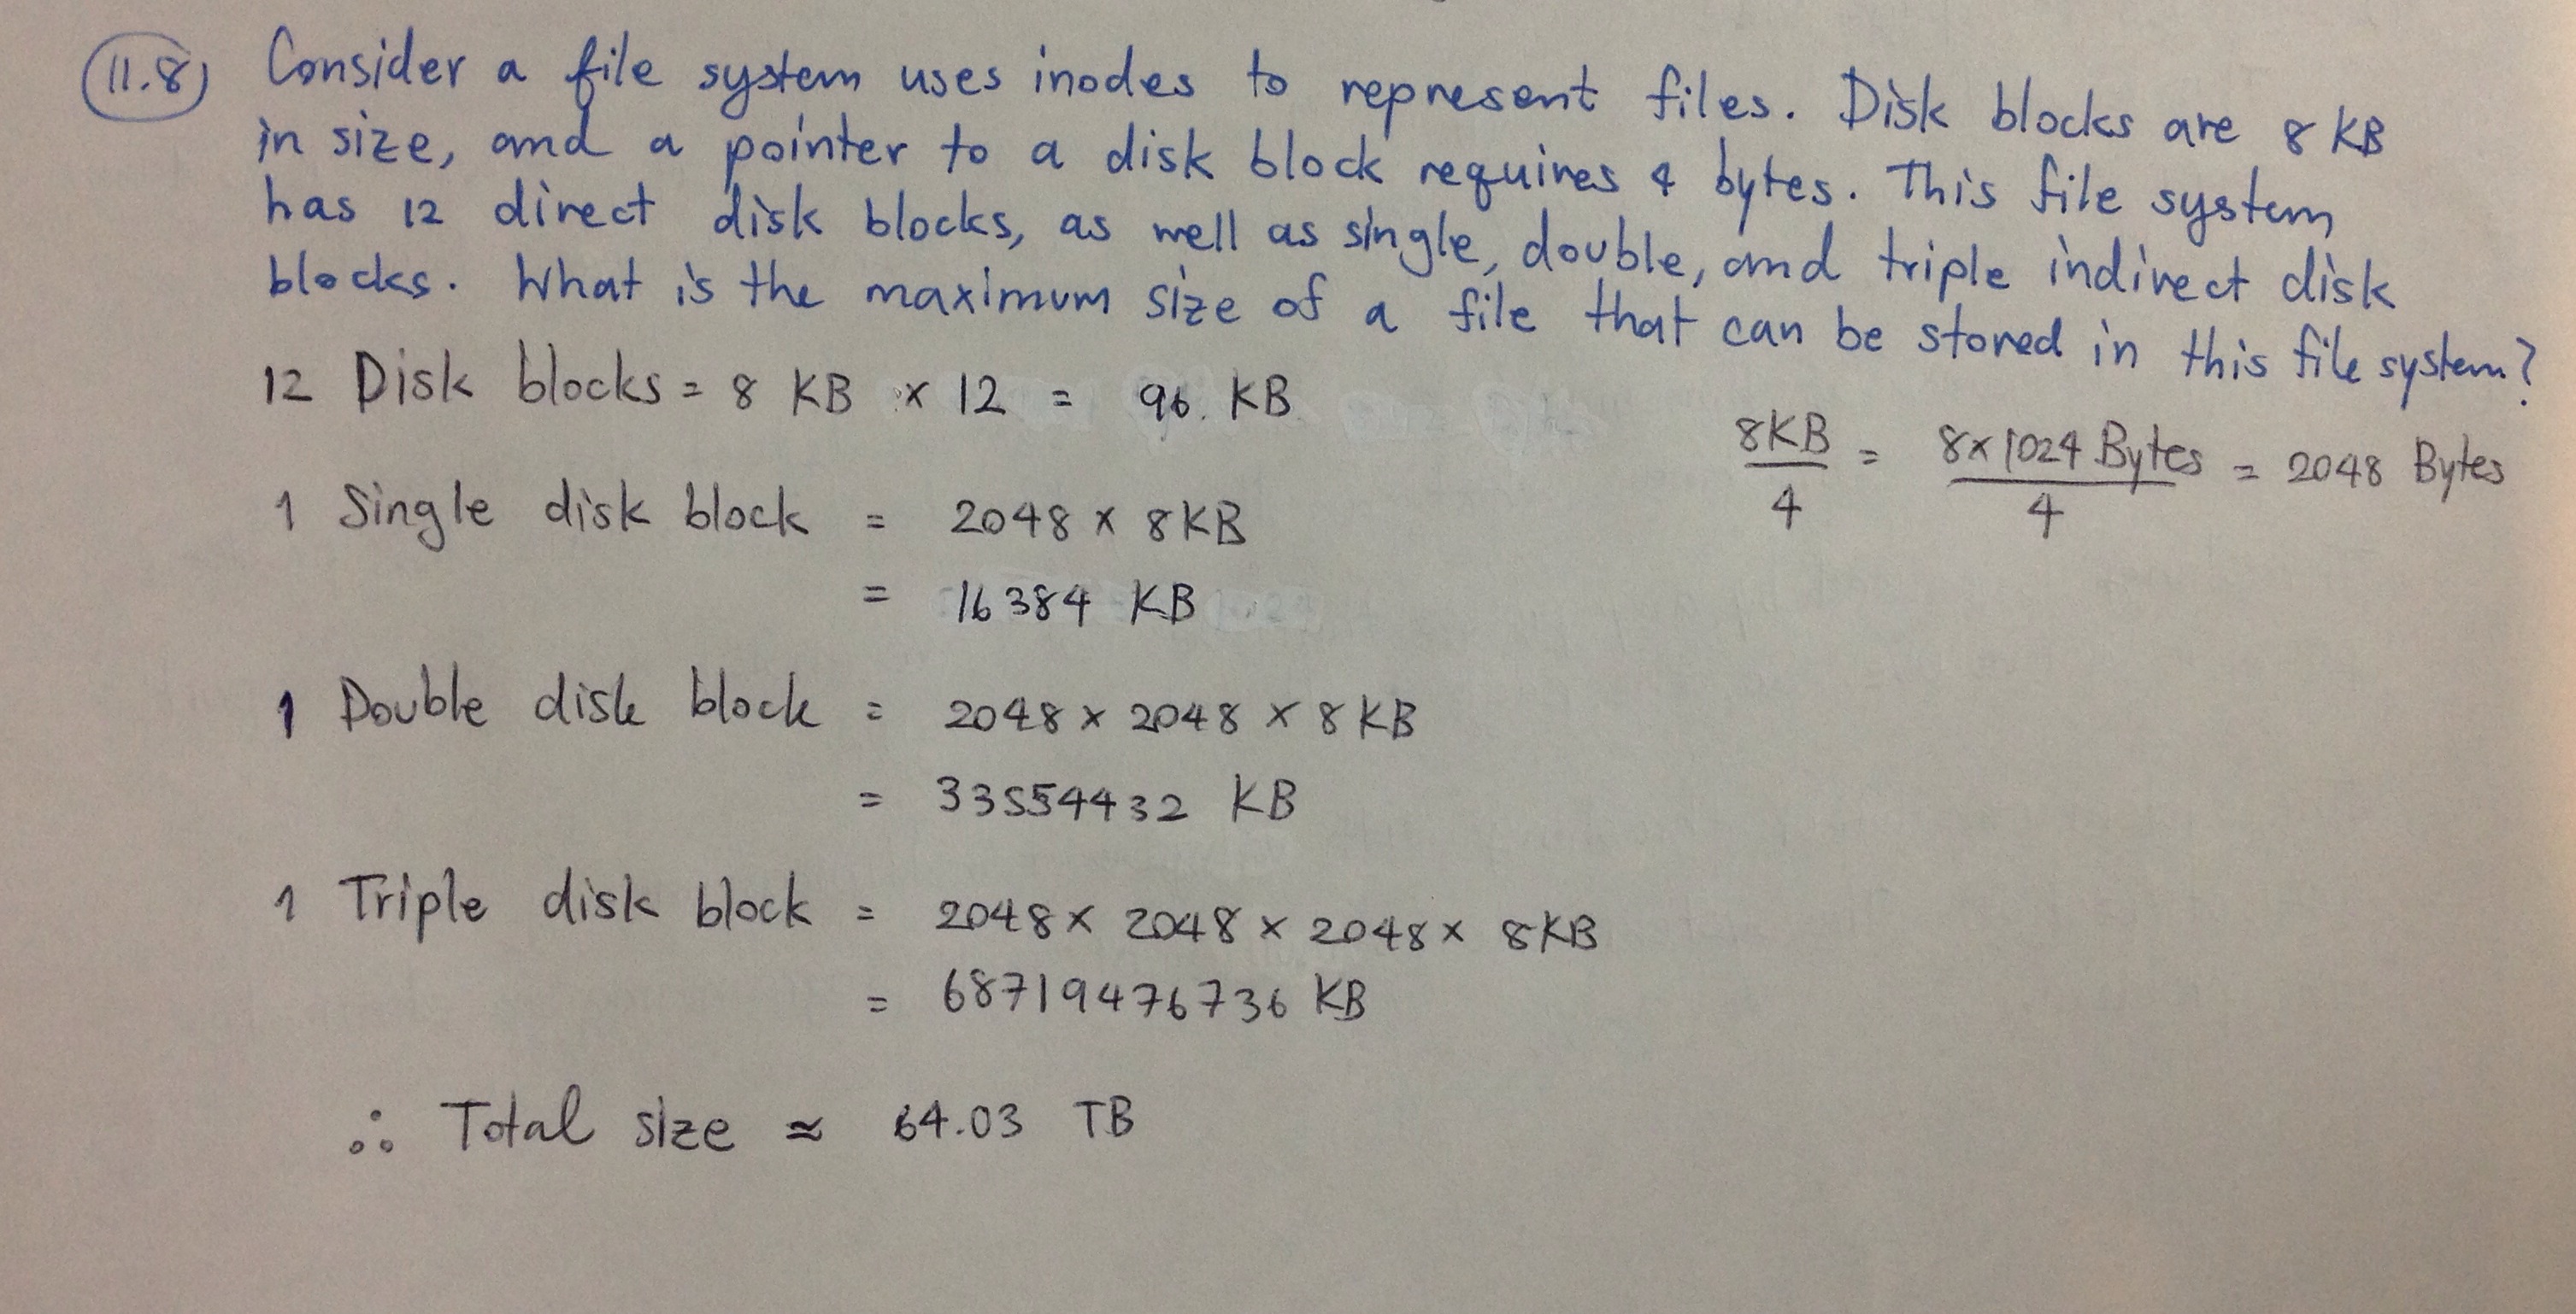 11.8) Consider a file system uses inodes to represent files. Disk blocks are 8 KB
in size, and a pointer to a disk block requires 4 bytes. This file system
has 12 direct disk blocks, as well as single, double, and triple indirect disk
blocks. What is the maximum size of a file that can be stored in this file system?
12 Disk blocks = 8 KB × 12 = 96 KB
8KB / 4 = 8×1024 Bytes / 4 = 2048 Bytes
1 Single disk block = 2048 × 8KB
= 16384 KB
1 Double disk block = 2048 × 2048 × 8KB
= 33554432 KB
1 Triple disk block = 2048 × 2048 × 2048 × 8KB
= 68719476736 KB
∴ Total size ≈ 64.03 TB